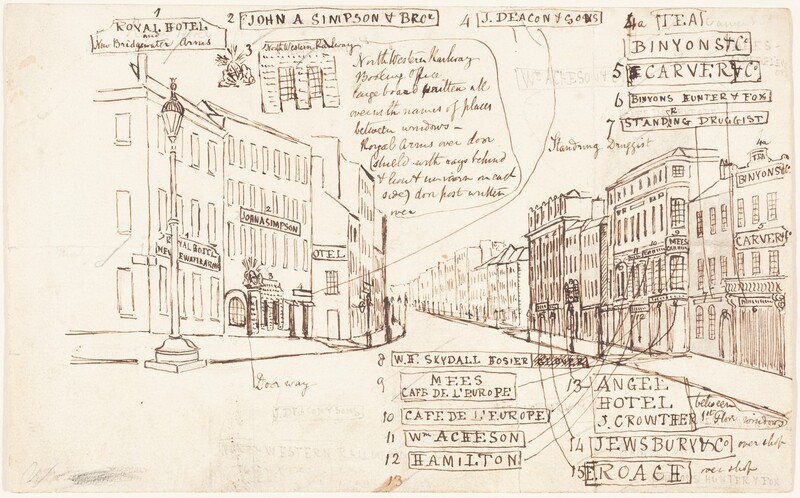 1
ROYAL HOTEL
and
New Bridgewater Arms
2 JOHN A SIMPSON & BROR
3
North Western Railway
North Western Railway
Booking Office
large board written all
over with names of places
between windows —
Royal Arms over door
(shield with rays behind
& lion & unicorn on each
side) door post written
over
4 J. DEACON & SONS
4a TEA
BINYONS & Co
5 CARVER & Co
6 BINYONS HUNTER & FOX
7 STANDING DRUGGIST
Standring Druggist
Wm ACHESON
2
JOHN A SIMPSON
ROYAL HOTEL
NEW BRIDGEWATER ARMS
OTEL
3
9
MEES
4a
TEA
BINYONS & Co
5
CARVER & Co
Door way
8 W.H. SKYDALL HOSIER GLOVER
9 MEES
CAFE DE L'EUROPE
10 CAFE DE L'EUROPE
11 Wm ACHESON
12 HAMILTON
13
13 ANGEL
HOTEL
J. CROWTHER
between
1st Floor windows
14 JEWSBURY & Co over shop
15 ROACH over shop
J. DEACON & SONS
NORTH WESTERN